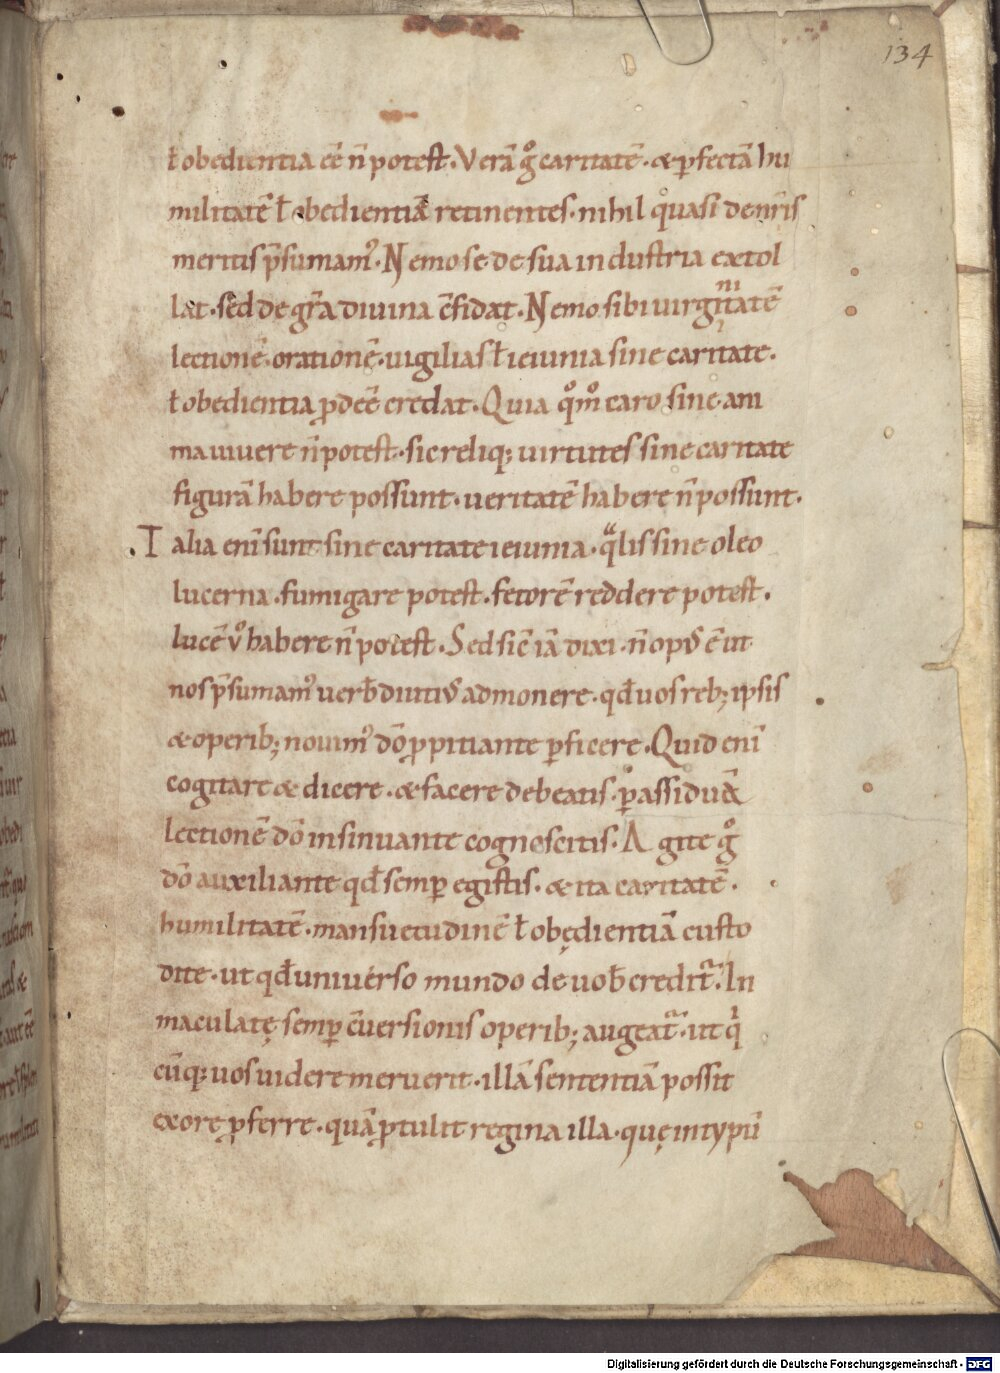 134
ł obedientia eē n̄ potest. Verā g̊ caritatē. & ꝑfectā hu
militatē ł obedientiā retinentes. nihil q̊uasi de nr̄is
meritis p̄sumam᷒. Nemo se de sua industria extol
lat. sed de gr̄a divina c̄fidat. Nemo sibi virginitatē
lectionē. orationē. vigilias ł ieiunia sine caritate.
ł obedientia ꝓdeē credat. Quia q̊m̊ caro sine ani
ma vivere n̄ potest. sic reliq; virtutes sine caritate
figurā habere possunt. veritatē habere n̄ possunt.
Talia eni̅ sunt sine caritate ieiunia. qͣlis sine oleo
lucerna. fumigare potest. fetorē reddere potest.
lucē v̊ habere n̄ potest. Sed sic̄ iā dixi. n̄ op᷒ ē ut
nos p̄sumam᷒ verƀ diuti᷒ admonere. qđ vos reb; ipsis
& operib; novim᷒ dō ꝓpitiante ꝑficere. Quid eni̅
cogitare & dicere. & facere debeatis. ꝑ assiduā
lectionē dō insinuante cognoscitis. Agite g̊
dō auxiliante qđ semꝑ egistis. & ita caritatē.
humilitatē. mansuetudinē ł obędientiā custo
dite. ut qđ universo mundo de voƀ credit᷑. In
maculatę semꝑ c̄versionis operib; augeat᷑. ut qͥ
cūq; vos videre meruerit. illā sententiā possit
ex ore ꝓferre. quā ꝓtulit regina illa. quę in typū
Digitalisierung gefördert durch die Deutsche Forschungsgemeinschaft - DFG